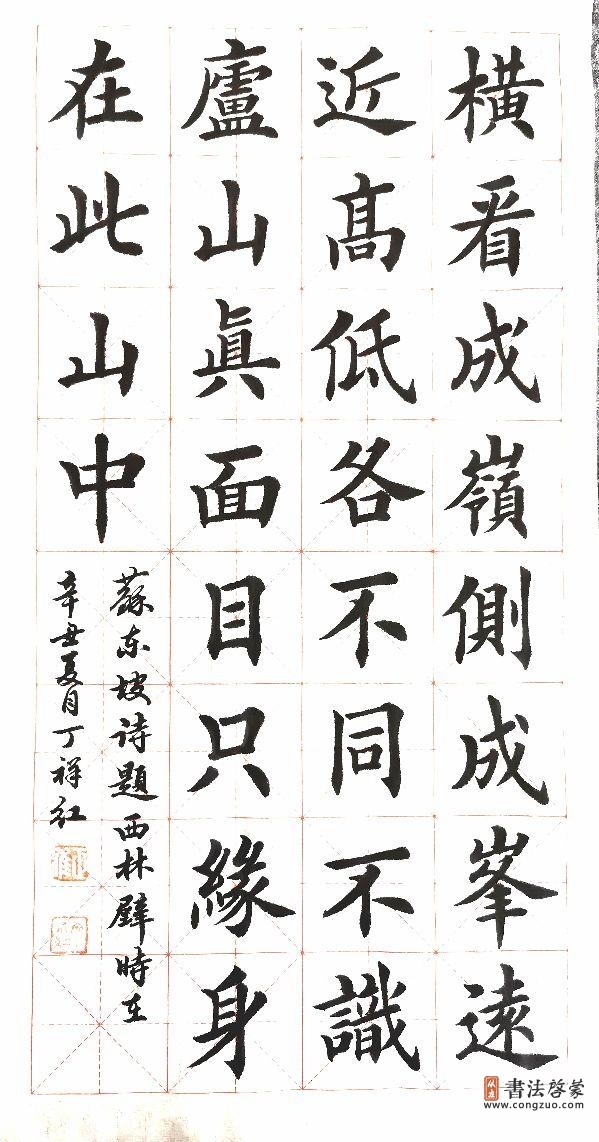 橫看成嶺側成峯遠
近高低各不同不識
廬山真面目只緣身
在此山中
蘇东坡诗題西林壁時在
辛丑夏月丁祥红
书法啓蒙
www.congzuo.com